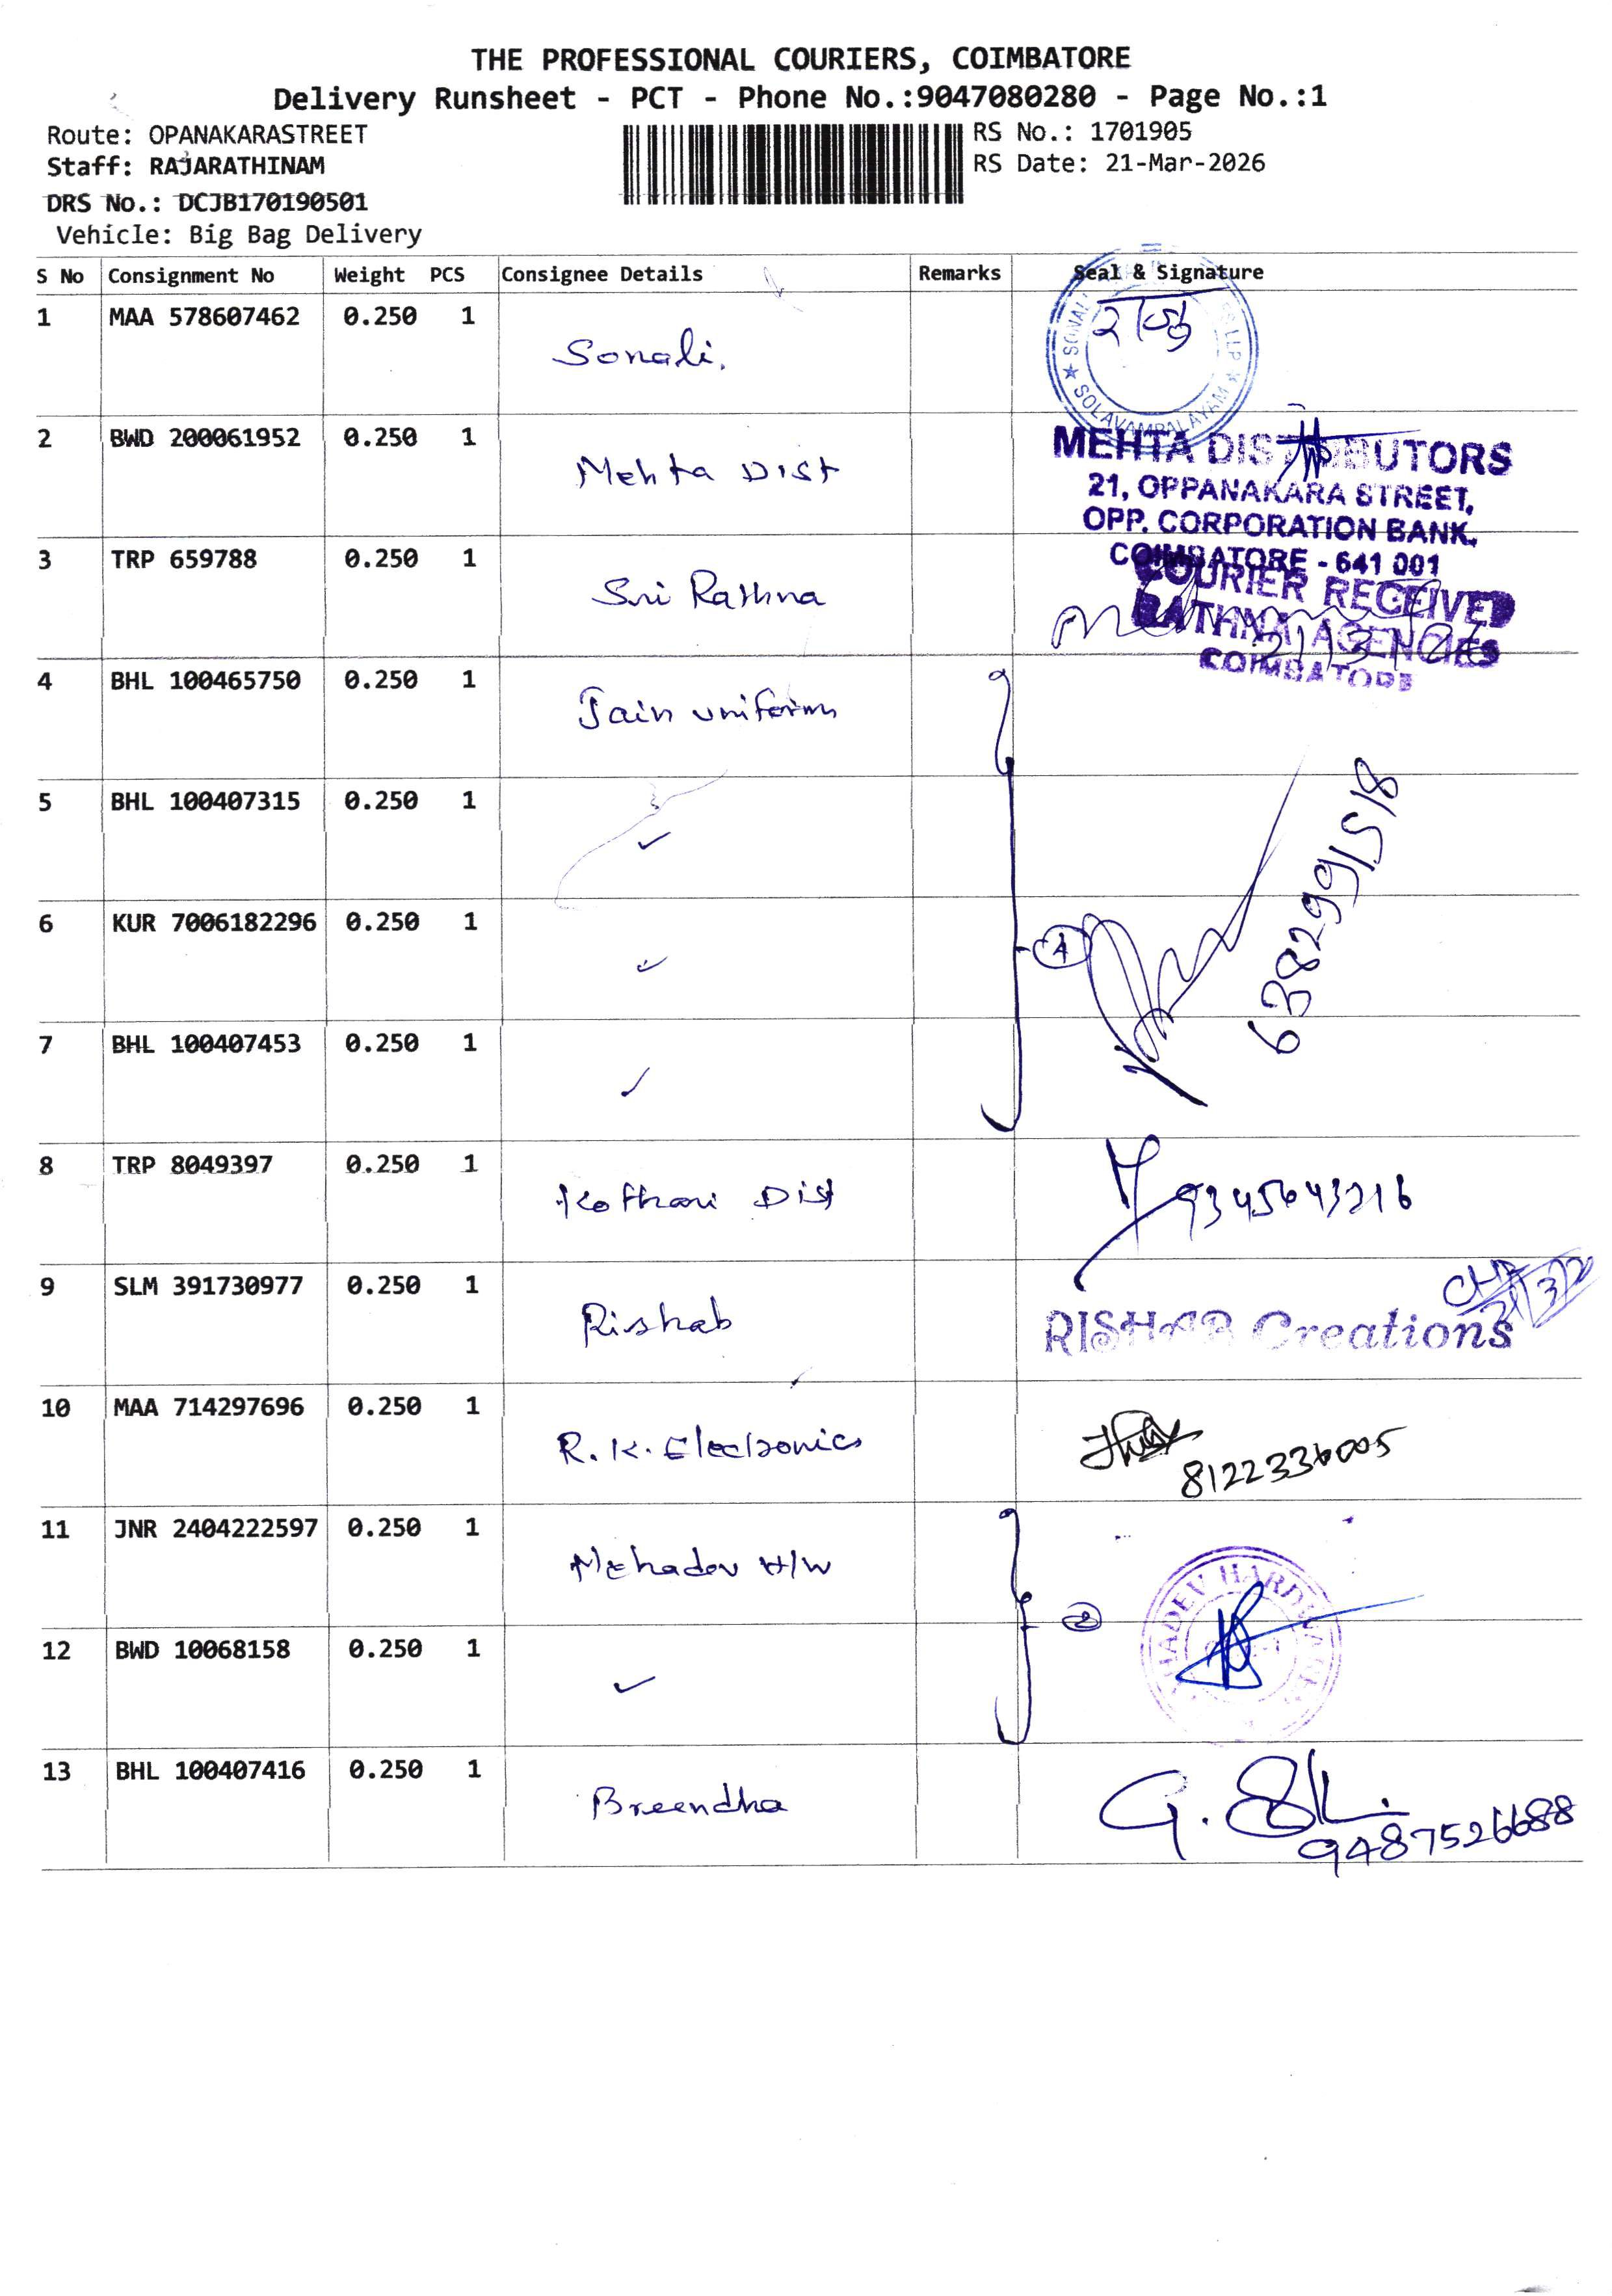 THE PROFESSIONAL COURIERS, COIMBATORE
Delivery Runsheet - PCT - Phone No.:9047080280 - Page No.:1
Route: OPANAKARASTREET
Staff: RAJARATHINAM
DRS No.: DCJB170190501
Vehicle: Big Bag Delivery
RS No.: 1701905
RS Date: 21-Mar-2026
S No Consignment No Weight PCS Consignee Details Remarks Seal & Signature
1 MAA 578607462 0.250 1 Sonali.
SOLAVAMPALAYAM
2 BWD 200061952 0.250 1 Mehta Dist
MEHTA DISTRIBUTORS
21, OPPANAKARA STREET,
OPP. CORPORATION BANK.
COIMBATORE - 641 001
3 TRP 659788 0.250 1 Sri Rathna
COURIER RECEIVED
RATHNA AGENCIES
COIMBATORE
4 BHL 100465750 0.250 1 Jain uniform
5 BHL 100407315 0.250 1 ✓
6 KUR 7006182296 0.250 1 ✓
7 BHL 100407453 0.250 1 ✓
4
6382991518
8 TRP 8049397 0.250 1 Kothari Dist 9345643216
9 SLM 391730977 0.250 1 Rishab
RISHAB Creations
10 MAA 714297696 0.250 1 R.K. Electronics
8122336005
11 JNR 2404222597 0.250 1 Mehadev H/W
2
MAHADEV HARDWARES
12 BWD 10068158 0.250 1 ✓
13 BHL 100407416 0.250 1 Breendha
9487526688